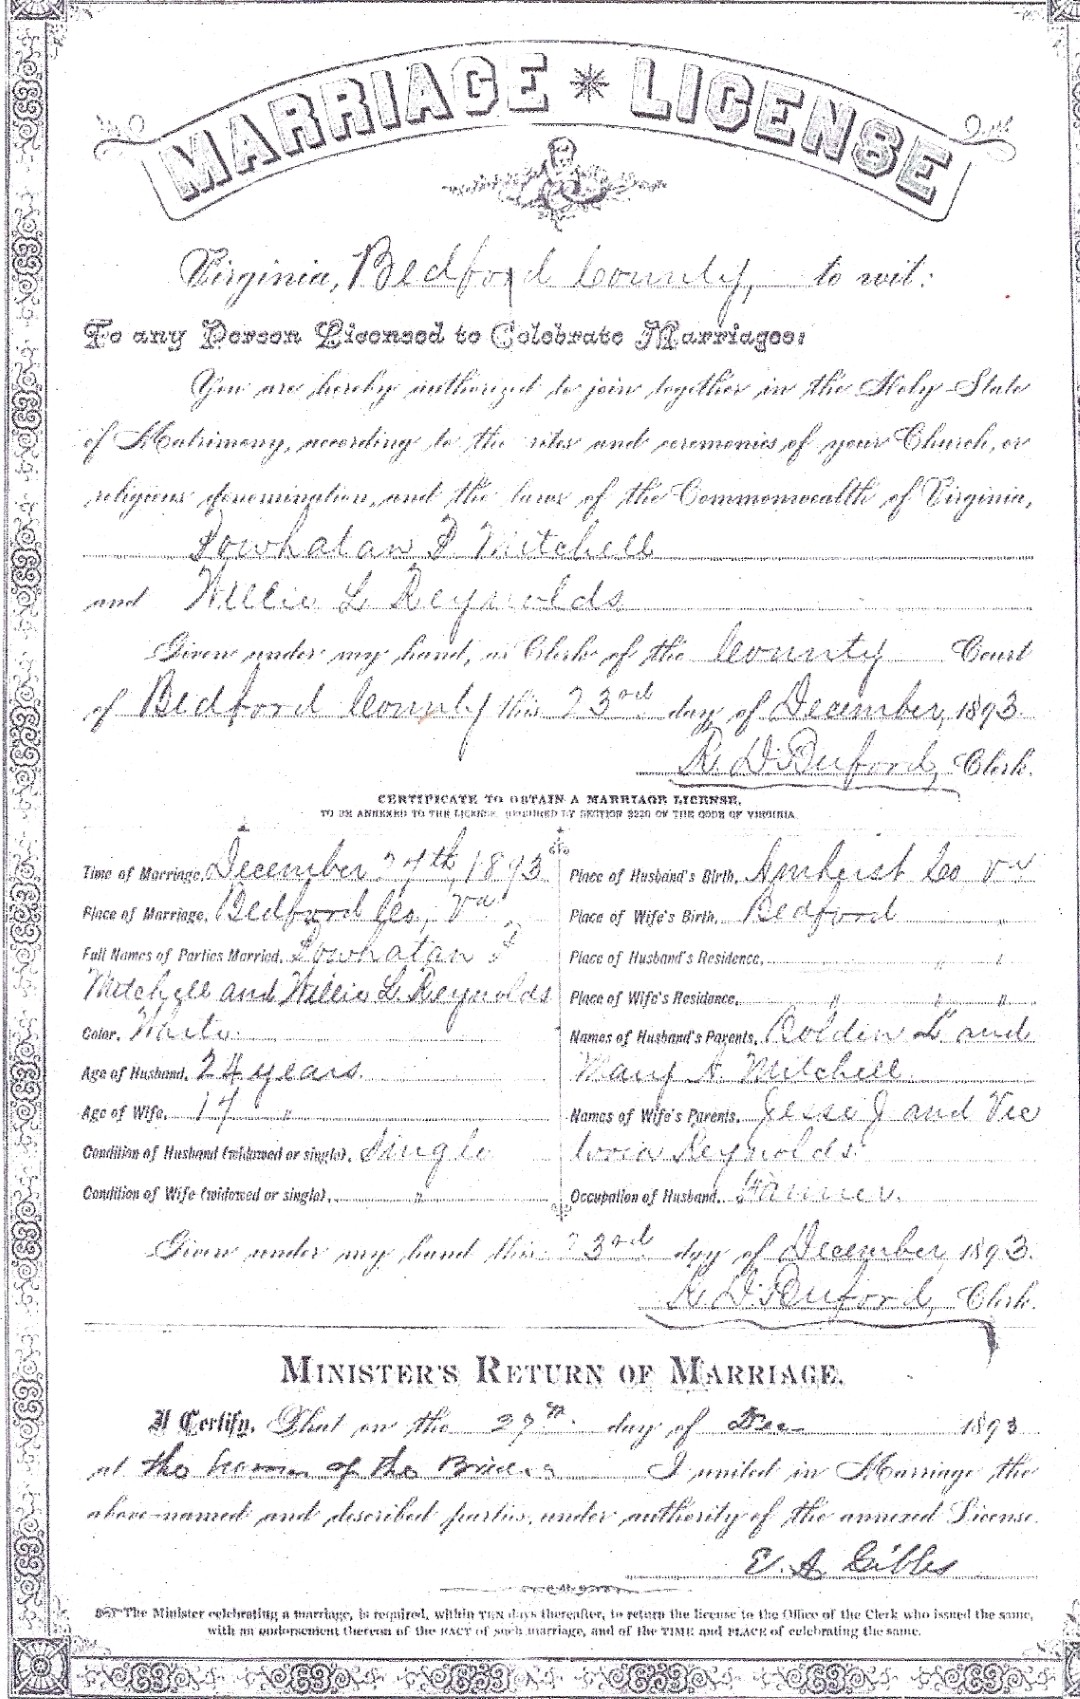 MARRIAGE * LICENSE
Virginia, Bedford County, to wit:
To any Person Licensed to Celebrate Marriages:
You are hereby authorized to join together in the Holy State
of Matrimony, according to the rites and ceremonies of your Church, or
religious denomination, and the laws of the Commonwealth of Virginia,
Powhatan P Mitchell
and Willie L Reynolds
Given under my hand, as Clerk of the County Court
of Bedford County this 23rd day of December, 1893.
R. D. Buford, Clerk.
CERTIFICATE TO OBTAIN A MARRIAGE LICENSE,
TO BE ANNEXED TO THE LICENSE, REQUIRED BY SECTION 2220 OF THE CODE OF VIRGINIA.
Time of Marriage, December 27th, 1893
Place of Marriage, Bedford Co., Va.
Full Names of Parties Married, Powhatan P
Mitchell and Willie L. Reynolds
Color, White.
Age of Husband, 24 years.
Age of Wife, "
Condition of Husband (widowed or single), Single
Condition of Wife (widowed or single), "
Place of Husband's Birth, Amherst Co Va
Place of Wife's Birth, Bedford "
Place of Husband's Residence, " "
Place of Wife's Residence, " " "
Names of Husband's Parents, L and
Mary A. Mitchell.
Names of Wife's Parents, Jesse J and Vic
toria Reynolds.
Occupation of Husband, Farmer.
Given under my hand this 23rd day of December, 1893.
R. D. Buford, Clerk.
MINISTER'S RETURN OF MARRIAGE.
I Certify, That on the 27th day of Dec 1893
at the home of the Brides I united in Marriage the
above-named and described parties, under authority of the annexed License.
E. A. Gibbs
The Minister celebrating a marriage, is required, within TEN days thereafter, to return the license to the Office of the Clerk who issued the same,
with an endorsement thereon of the FACT of such marriage, and of the TIME and PLACE of celebrating the same.